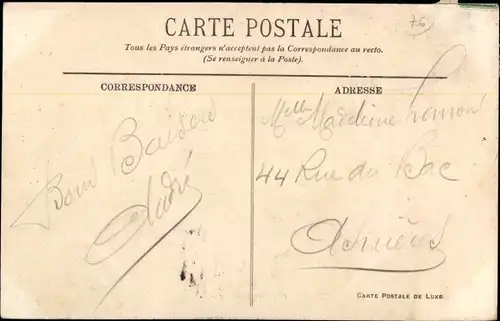 CARTE POSTALE
76
Tous les Pays étrangers n'acceptent pas la Correspondance au recto.
(Se renseigner à la Poste).
CORRESPONDANCE
Bons Baisers
André
ADRESSE
Melle Madeleine
44 Rue du Bac
Asnières
CARTE POSTALE DE LUXE.